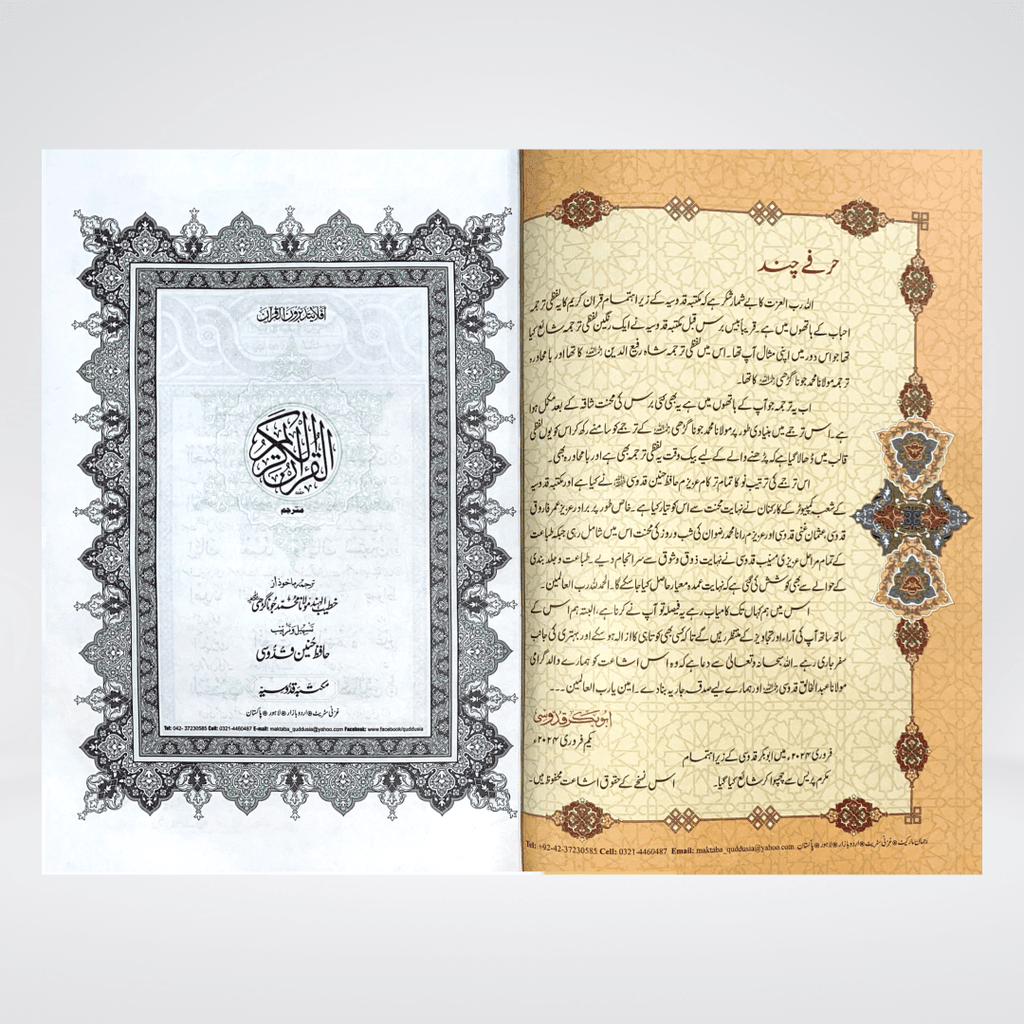 افلا یتدبرون القرآن
القرآن الکریم
مترجم
ترجمہ ماخوذ از
خطیب الہند مولانا محمد جوناگڑھی رحمہ اللہ
تسہیل و ترتیب
حافظ حنین قدوسی
مکتبہ قدوسیہ
غزنی سٹریٹ ۞ اردو بازار ۞ لاہور ۞ پاکستان
Tel: 042- 37230585 Cell: 0321-4460487 E-mail: maktaba_quddusia@yahoo.com Facebook: www.facebook/quddusia
حرفے چند
اللہ رب العزت کا بے شمار شکر ہے کہ مکتبہ قدوسیہ کے زیر اہتمام قرآن کریم کا یہ لفظی ترجمہ
احباب کے ہاتھوں میں ہے۔ قریباً بیس برس قبل مکتبہ قدوسیہ نے ایک رنگین لفظی ترجمہ شائع کیا
تھا جو اس دور میں اپنی مثال آپ تھا۔ اس میں لفظی ترجمہ شاہ رفیع الدین رحمہ اللہ کا تھا اور بامحاورہ
ترجمہ مولانا محمد جوناگڑھی رحمہ اللہ کا تھا۔
اب یہ ترجمہ جو آپ کے ہاتھوں میں ہے یہ بھی کئی برس کی محنت شاقہ کے بعد مکمل ہوا
ہے۔ اس ترجمے میں بنیادی طور پر مولانا محمد جوناگڑھی رحمہ اللہ کے ترجمے کو سامنے رکھ کر اس کو یوں لفظی
قالب میں ڈھالا گیا ہے کہ پڑھنے والے کے لیے بیک وقت یہ لفظی ترجمہ بھی ہے اور بامحاورہ بھی۔
اس ترجمے کی ترتیب نو کا تمام تر کام عزیزم حافظ حنین قدوسی نے کیا ہے اور مکتبہ قدوسیہ
کے شعبہ کمپیوٹر کے کارکنان نے نہایت محنت سے اس کو تیار کیا ہے۔ خاص طور پر برادر عزیز عمر فاروق
قدوسی، عثمان غنی قدوسی اور عزیزم رانا محمد رضوان کی شب و روز کی محنت اس میں شامل رہی جبکہ طباعت
کے تمام مراحل عزیزی منیب قدوسی نے نہایت ذوق و شوق سے سرانجام دیے۔ طباعت و جلد بندی
کے حوالے سے بھی کوشش کی گئی ہے کہ نہایت عمدہ معیار حاصل کیا جا سکے گا۔ الحمد للہ رب العالمین۔
اس میں ہم کہاں تک کامیاب رہے یہ فیصلہ تو آپ نے کرنا ہے، البتہ ہم اس کے
ساتھ ساتھ آپ کی آراء اور تجاویز کے منتظر رہیں گے تاکہ کسی بھی کوتاہی کا ازالہ ہو سکے اور بہتری کی جانب
سفر جاری رہے۔ اللہ سبحانہ وتعالی سے دعا ہے کہ وہ اس اشاعت کو ہمارے والد گرامی
مولانا عبدالخالق قدوسی رحمہ اللہ اور ہمارے لیے صدقہ جاریہ بنا دے۔ آمین یا رب العالمین ۔۔۔
ابوبکر قدوسی
یکم فروری ۲۰۲۴ء
فروری ۲۰۲۴ء میں ابوبکر قدوسی کے زیر اہتمام
مکرم پریس سے چھپوا کر شائع کیا گیا۔ اس نسخے کے حقوق اشاعت محفوظ ہیں۔
Tel: +92-42-37230585 Cell: 0321-4460487 Email: maktaba_quddusia@yahoo.com رحمان مارکیٹ ۞ غزنی سٹریٹ ۞ اردو بازار ۞ لاہور ۞ پاکستان